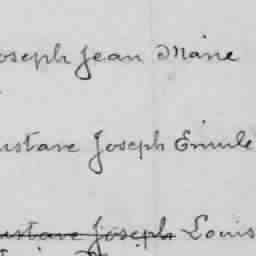 oseph Jean Marie
ustave Joseph Emile
ustave Joseph Louis